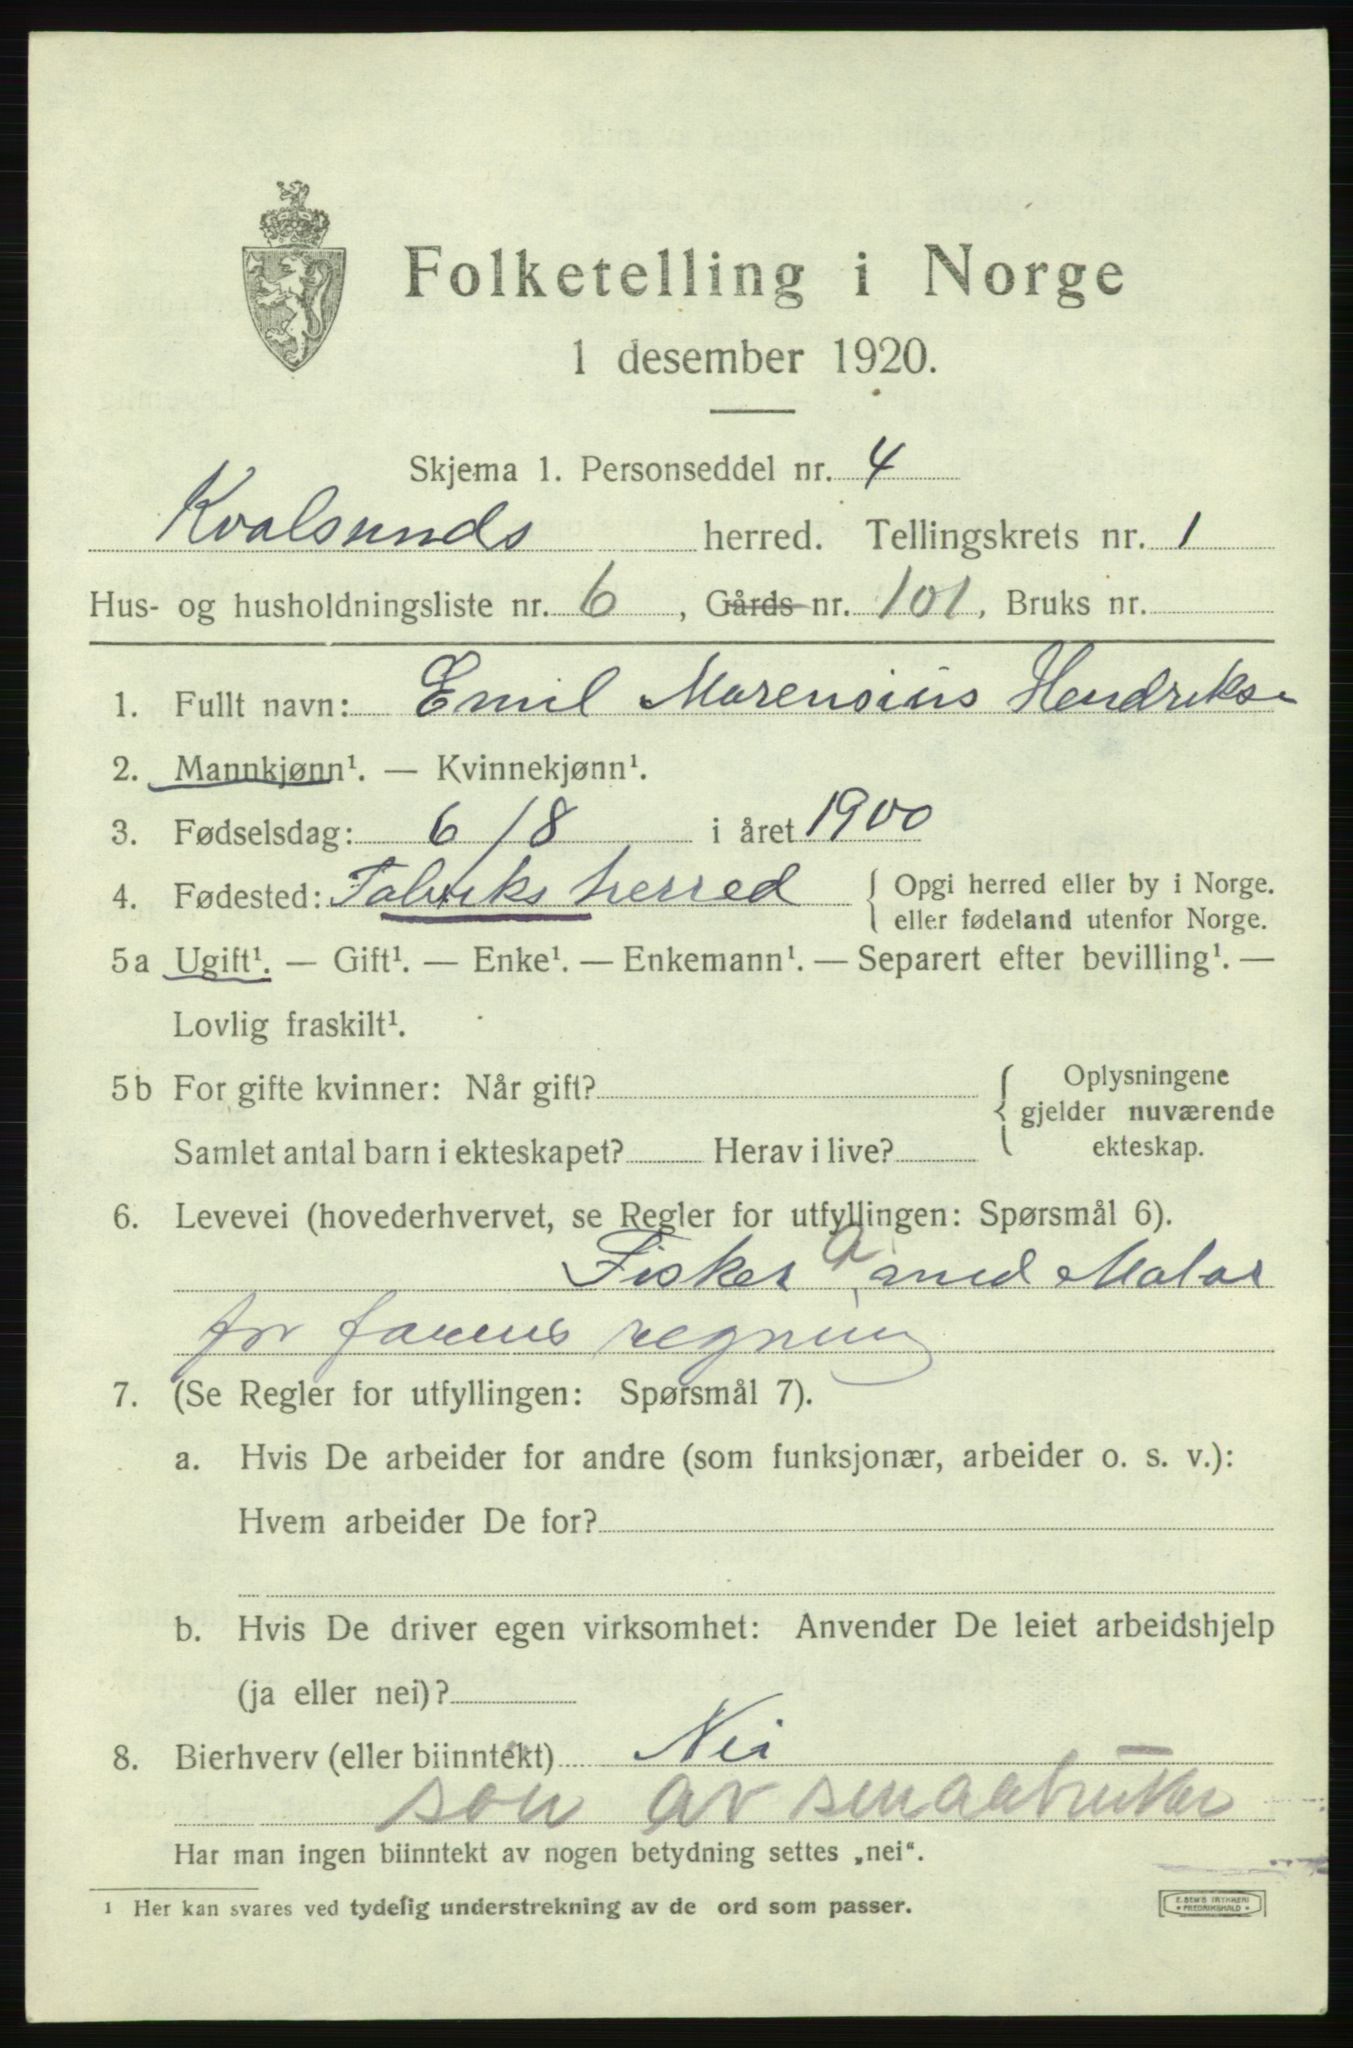 Folketelling i Norge
1 desember 1920.
Skjema 1. Personseddel nr. 4
Kvalsunds herred. Tellingskrets nr. 1
Hus- og husholdningsliste nr. 6, Gårds- nr. 101, Bruks nr.
1. Fullt navn: Emil Marensius Hendriks
2. Mannkjønn¹. — Kvinnekjønn¹.
3. Fødselsdag: 6/8 i året 1900
4. Fødested: herred { Opgi herred eller by i Norge.
eller fødeland utenfor Norge.
5a Ugift¹. — Gift¹. — Enke¹. — Enkemann¹. — Separert efter bevilling¹. —
Lovlig fraskilt¹.
5b For gifte kvinner: Når gift? { Oplysningene
gjelder nuværende
Samlet antal barn i ekteskapet? Herav i live? ekteskap.
6. Levevei (hovederhvervet, se Regler for utfyllingen: Spørsmål 6).
Fisker a med
for farens regning
7. (Se Regler for utfyllingen: Spørsmål 7).
a. Hvis De arbeider for andre (som funksjonær, arbeider o. s. v.):
Hvem arbeider De for?
b. Hvis De driver egen virksomhet: Anvender De leiet arbeidshjelp
(ja eller nei)?
8. Bierhverv (eller biinntekt) Nei
søn av smaabruker
Har man ingen biinntekt av nogen betydning settes „nei“.
¹ Her kan svares ved tydelig understrekning av de ord som passer.
E. SEM'S TRYKKERI
* FREDRIKSHALD *